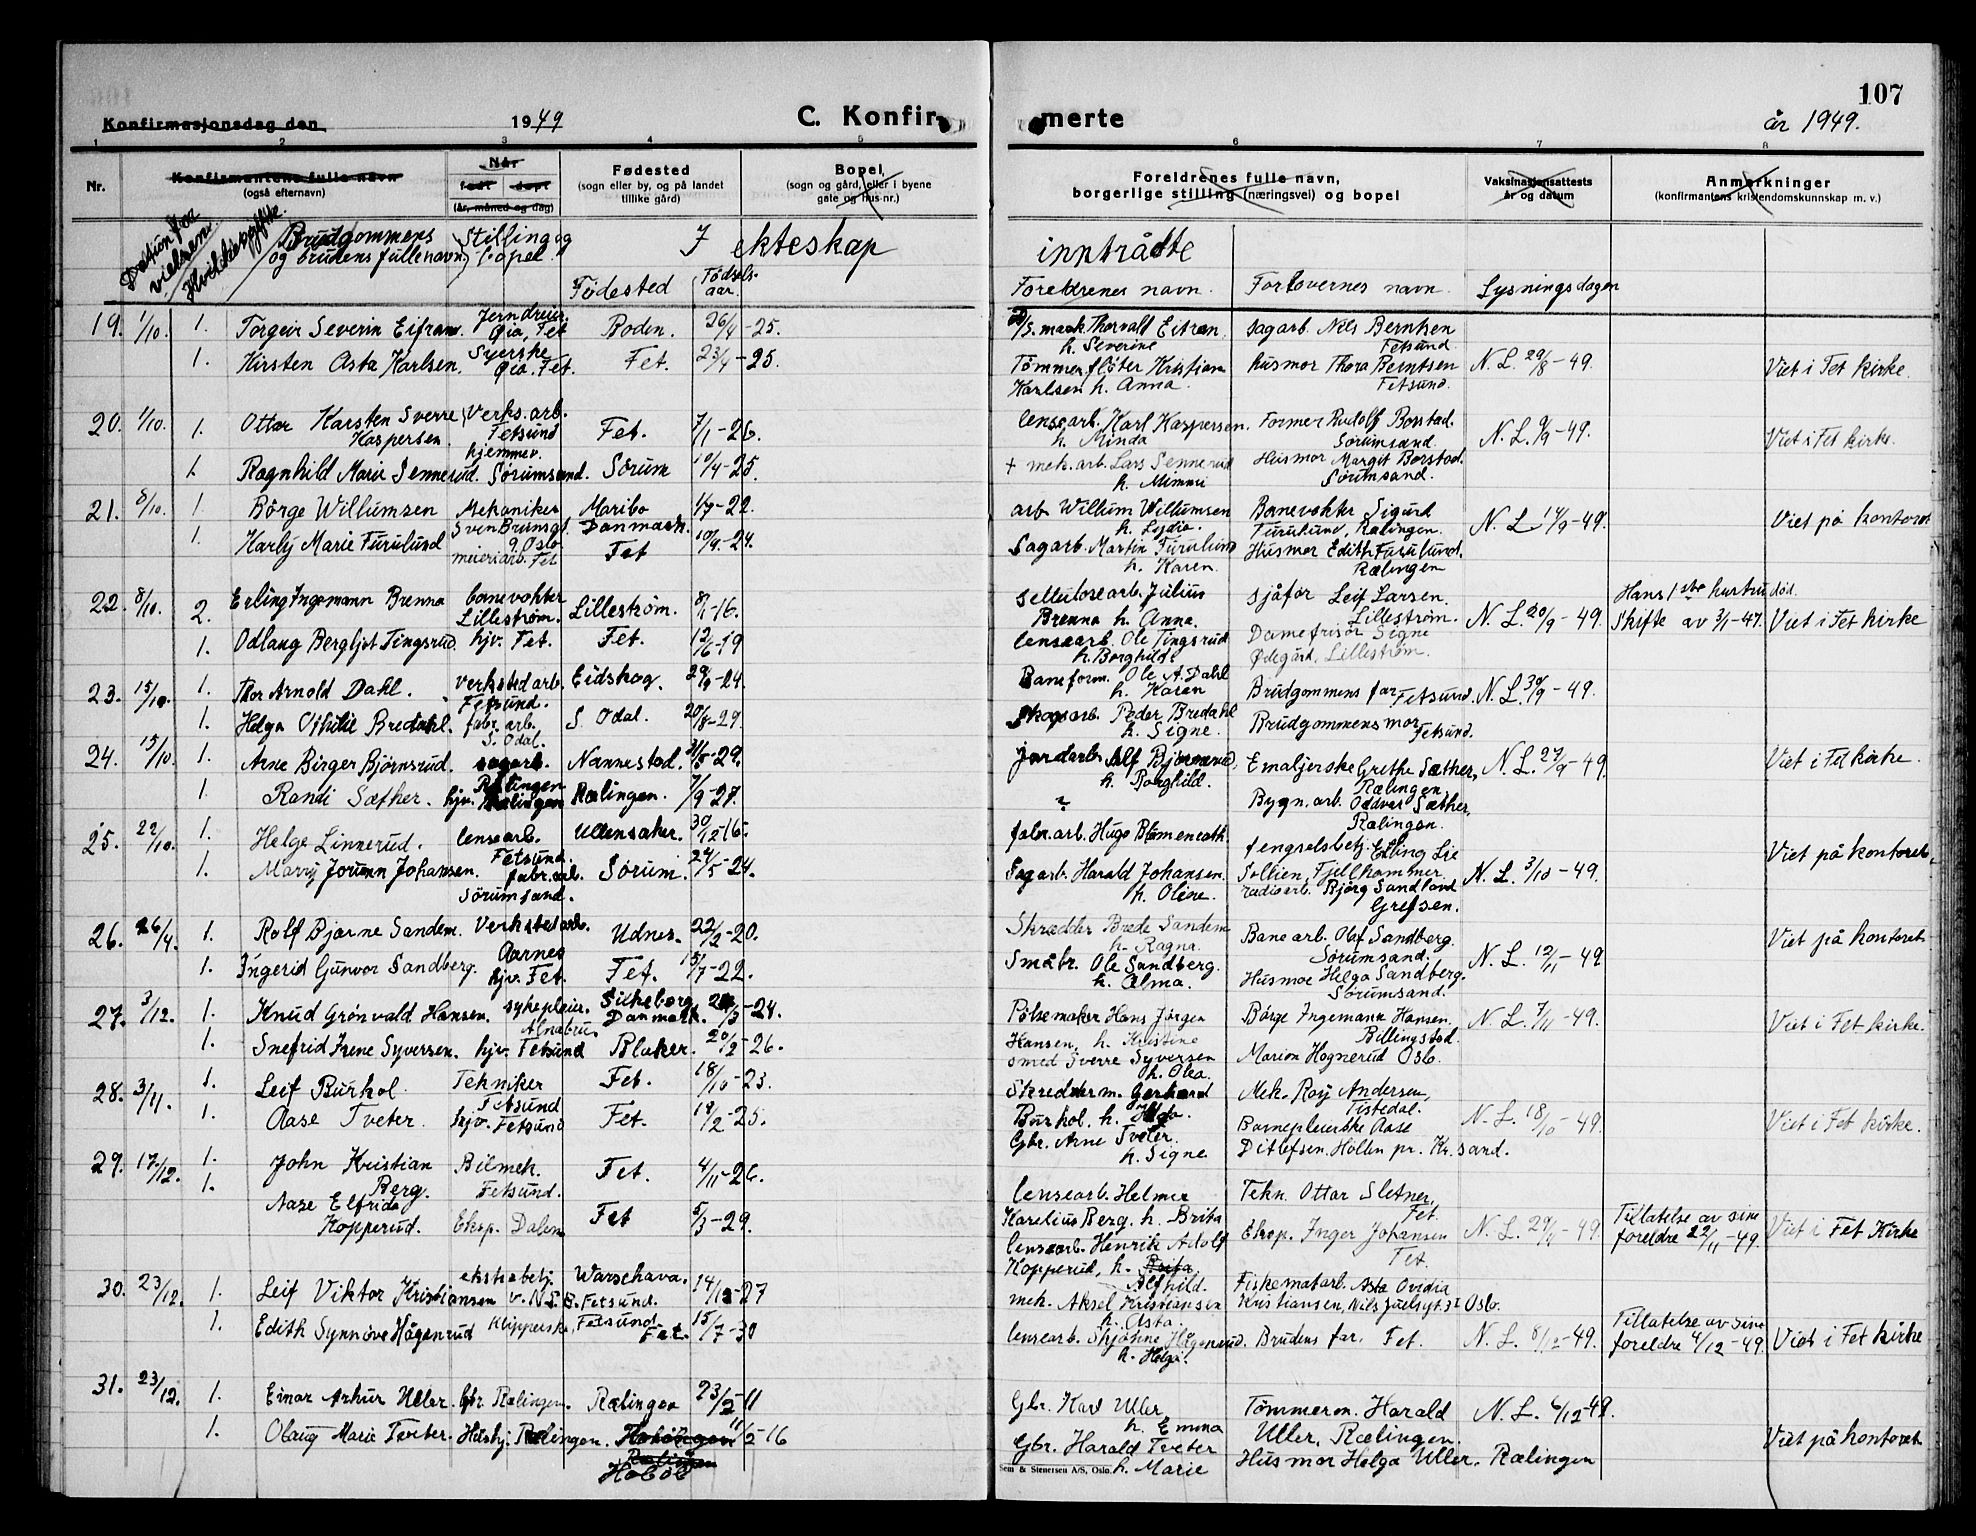 107
Konfirmasjonsdag den 1949 C. Konfirmerte år 1949.
1 2 3 4 5 6 7 8
Nr.
Konfirmantens fulle navn
(også efternavn)
Når
født døpt
(år, måned og dag)
Fødested
(sogn eller by, og på landet
tillike gård)
Bopel,
(sogn og gård, eller i byene
gate og hus-nr.)
Foreldrenes fulle navn,
borgerlige stilling (næringsvei) og bopel
Vaksinasjonsattests
år og datum
Anmerkninger
(konfirmantens kristendomskunnskap m. v.)
Brudgommens
og brudens fulle navn
Stilling og
bopel.
I ekteskap inntrådte
Fødested
Fødsels-
aar.
Foreldrenes navn. Forlovernes navn. Lysningsdagen
19. 1/10. 1. Torgeir Severin Jerndreier, Fet Boden. 26/4-25.
Thorvald h. Severine sagarb. Nils Berntsen Fetsund.
1. Kirsten Asta Karlsen. Syerske Fet. Fet. 23/4-25.
Tømmerfløter Kristian Karlsen h. Anna. husmor Thora Berntsen Fetsund. N. L. 29/8-49. Viet i Fet kirke.
20. 1/10. 1. Ottar Karsten Sverre Kaspersen. Verks.arb. Fetsund Fet. 7/1-26.
lensearb. Karl Kaspersen. h. Minda Former Rudolf Borstad. Sørumsand. N. L. 9/9-49. Viet i Fet kirke.
1. Ragnhild Marie Sennerud. hjemmev. Sørumsand. Sørum 10/4-25.
+ mek. arb. Lars Sennerud h. Mimmi Husmor Margit Borstad. Sørumsand.
21. 8/10. 1. Børge Willumsen Mekaniker Oslo Maribo Danmark. 1/7-22.
arb. Willum Willumsen h. Lydia. Banevokter Sigurd Furulund, Rælingen. N. L. 14/9-49. Viet på kontoret
1. Karly Marie Furulund meieriarb. Fet Fet 10/9-24.
Sagarb. Martin Furulund h. Karen. Husmor Edith Furulund. Rælingen
22. 8/10. 2. Erling Ingemann Brenna banevokter Lillestrøm. Lillestrøm. 8/1-16.
Cellulosearb. Julius Brenna h. Anna. sjåfør Leif Larsen. Lillestrøm. N. L. 20/9-49. Hans 1ste hustru død. Skifte av 3/1-47. Viet i Fet kirke
1. Odlaug Bergljot Tingsrud. hjv. Fet. Fet. 12/6-19
lensearb. Ole Tingsrud h. Borghild. Damefrisør Signe Ødegård, Lillestrøm.
23. 15/10. 1. Thor Arnold Dahl. verkstedarb. Fetsund. Eidskog. 29/9-24.
Baneform. Ole A. Dahl h. Karen Brudgommens far Fetsund. N. L. 30/9-49.
1. Helga Othilie Bredahl. fabr. arb. S. Odal. S. Odal. 20/8-29.
Skogsarb. Peder Bredahl h. Signe. Brudgommens mor Fetsund.
24. 15/10. 1. Arne Birger Bjørnsrud. sagarb. Rælingen Nannestad. 31/5-29.
jordarb. Alf Bjørnsrud, h. Borghild. Emaljerske Grethe Sæther, Rælingen. N. L. 27/9-49. Viet i Fet kirke.
1. Randi Sæther. hjv. Rælingen Rælingen. 7/9-27.
? Bygn. arb. Oddvar Sæther, Rælingen.
25. 22/10. 1. Helge Linnerud. lensearb. Fetsund. Ullensaker. 30/12-16.
fabr. arb. Hugo fengselsbetj. Erling Lie Sollien, Fjellhammer. N. L. 3/10-49. Viet på kontoret.
1. Marry Jorunn Johansen. fabr. arb. Sørumsand. Sørum. 24/5-24.
Sagarb. Harald Johansen. h. Oline. radioarb. Bjørg Sandlund Grefsen.
26. 26/4. 1. Rolf Bjarne Sandem. Verkstedarb. Aarnes Udnes. 22/2-20.
Skrædder Brede Sandem h. Ragna. Banearb. Olaf Sandberg. Sørumsand. N. L. 12/11-49 Viet på kontoret
1. Ingerid Gunvor Sandberg. hjv. Fet. Fet. 15/7-22.
Småbr. Ole Sandberg. h. Alma. Husmor Helga Sandberg. Sørumsand.
27. 3/12. 1. Knud Grønvald Hansen. sykepleier. Alnabru Silkeborg Danmark. /3-24.
Pølsemaker Hans Jørgen Hansen, h. Kristine Børge Ingemann Hansen. Billingstad. N. L. 7/11-49. Viet i Fet kirke.
1. Snefrid Irene Syversen. hjv. Fetsund Blaker. 20/2-26.
smed Sverre Syversen h. Olea. Marion Hognerud Oslo.
28. 3/11. 1. Leif Burhol. Tekniker Fetsund Fet. 18/10-23.
Skreddterm. Gerhard Burhol, h. Mek. Roy Andersen, Tistedal. N. L. 18/10-49. Viet i Fet kirke.
1. Aase Tveter. hjv. Fetsund Fet. 19/2-25.
Gbr. Arne Tveter. h. Signe Barnepleierske Aase Ditlefsen. Høllen pr. Kr. sand.
29. 17/12. 1. John Kristian Berg. Bilmek. Fetsund. Fet. 4/11-26.
lensearb. Helmer Karelius Berg. h. Brita Tekn. Ottar Sletner, Fet. N. L. 29/11-49. Tillatelse av sine foreldre 22/11-49. Viet i Fet Kirke
1. Aase Elfrida Kopperud. Eksp. Dalen Fet 5/3-29.
lensearb. Henrik Adolf Kopperud, h. Alfhild. Eksp. Inger Johansen Fet.
30. 23/12. 1. Leif Viktor Kristiansen ekstrabetj. v. N.S.B. Fetsund. Warschava. 14/12-27
mek. Aksel Kristiansen h. Asta Fiskematarb. Asta Ovidia Kristiansen, Nils Juelsgt. 3I Oslo.
1. Edith Synnøve Hågenrud Klipperske, Fetsund Fet. 15/7-30
lensearb. Hågenrud. h. Helga. Brudens far. Fet. N. L. 8/12-49. Tillatelse av sine foreldre 4/12-49. Viet i Fet kirke
31. 23/12. 1. Einar Arthur Uller. Gbr Rælingen. Rælingen 23/2-11
Gbr. Karl Uller h. Emma Tømmerm. Harald Uller, Rælingen. N. L. 6/12-49.
1. Olaug Marie Tveter. Hushj. Rælingen. Hobøl 11/2-16
Gbr. Harald Tveter h. Marie Husmor Helga Uller. Rælingen Viet på kontoret
Sem & Stenersen A/S, Oslo.